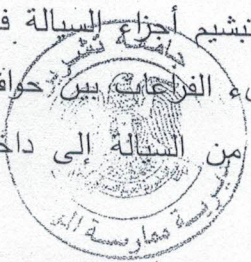 تنشيم أجزاء السيالة ف
ء الفراغات بين حواف
من السيالة إلى داخ
جامعة تشرين
ممارسة